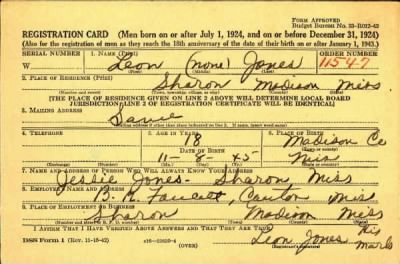 Form Approved
Budget Bureau No. 33-R022-42
REGISTRATION CARD (Men born on or after July 1, 1924, and on or before December 31, 1924)
(Also for the registration of men as they reach the 18th anniversary of the date of their birth on or after January 1, 1943.)
SERIAL NUMBER 1. NAME (Print) ORDER NUMBER
W Leon (none) Jones 11547
(First) (Middle) (Last)
2. PLACE OF RESIDENCE (Print)
Sharon Madison Miss
[THE PLACE OF RESIDENCE GIVEN ON LINE 2 ABOVE WILL DETERMINE LOCAL BOARD
JURISDICTION; LINE 2 OF REGISTRATION CERTIFICATE WILL BE IDENTICAL]
3. MAILING ADDRESS
Same
4. TELEPHONE 5. AGE IN YEARS 6. PLACE OF BIRTH
18 Madison Co
DATE OF BIRTH
11-8-45 Miss
7. NAME AND ADDRESS OF PERSON WHO WILL ALWAYS KNOW YOUR ADDRESS
Jessie Jones- Sharon Miss
8. EMPLOYER'S NAME AND ADDRESS
Canton Miss
9. PLACE OF EMPLOYMENT OR BUSINESS
Sharon Madison Miss
I AFFIRM THAT I HAVE VERIFIED ABOVE ANSWERS AND THAT THEY ARE TRUE.
DSS Form 1 (OVER) Leon Jones his
mark